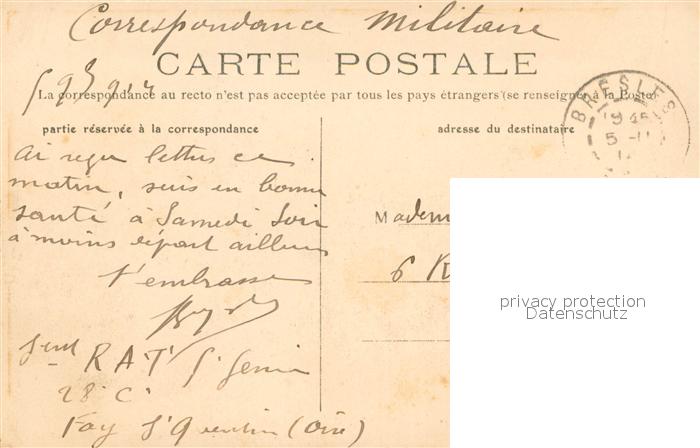 Correspondance Militaire
CARTE POSTALE
La correspondance au recto n'est pas acceptée par tous les pays étrangers (se renseigner à la Poste)
partie réservée à la correspondance
adresse du destinataire
BRESLES
5-11
Ai reçu lettres ce
matin, suis en bonne
santé à Samedi Soir
à moins départ ailleurs
t'embrasse
R.A.T. Génie
28e Cie
Fay St Quentin (Oise)
Madem
6 R
privacy protection
Datenschutz